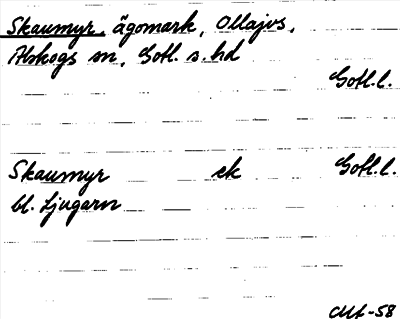 Skaumyr, ägomark, Ollajvs,
Alskogs sn, Gotl. s. hd
Gotl.l.
Skaumyr ek Gotl.l.
bl. Ljugarn